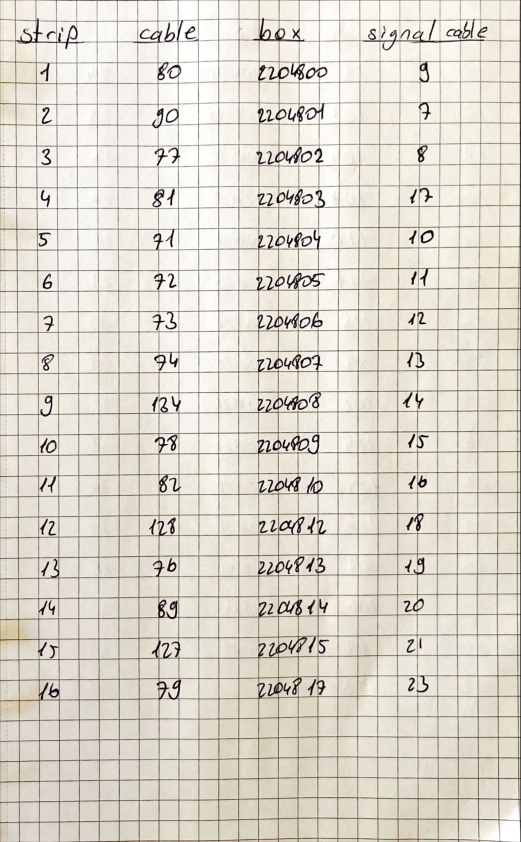 strip cable box signal cable
1 80 2204800 9
2 90 2204801 7
3 77 2204802 8
4 81 2204803 17
5 71 2204804 10
6 72 2204805 11
7 73 2204806 12
8 74 2204807 13
9 134 2204808 14
10 78 2204809 15
11 82 2204810 16
12 128 2204812 18
13 76 2204813 19
14 89 2204814 20
15 127 2204815 21
16 79 2204817 23